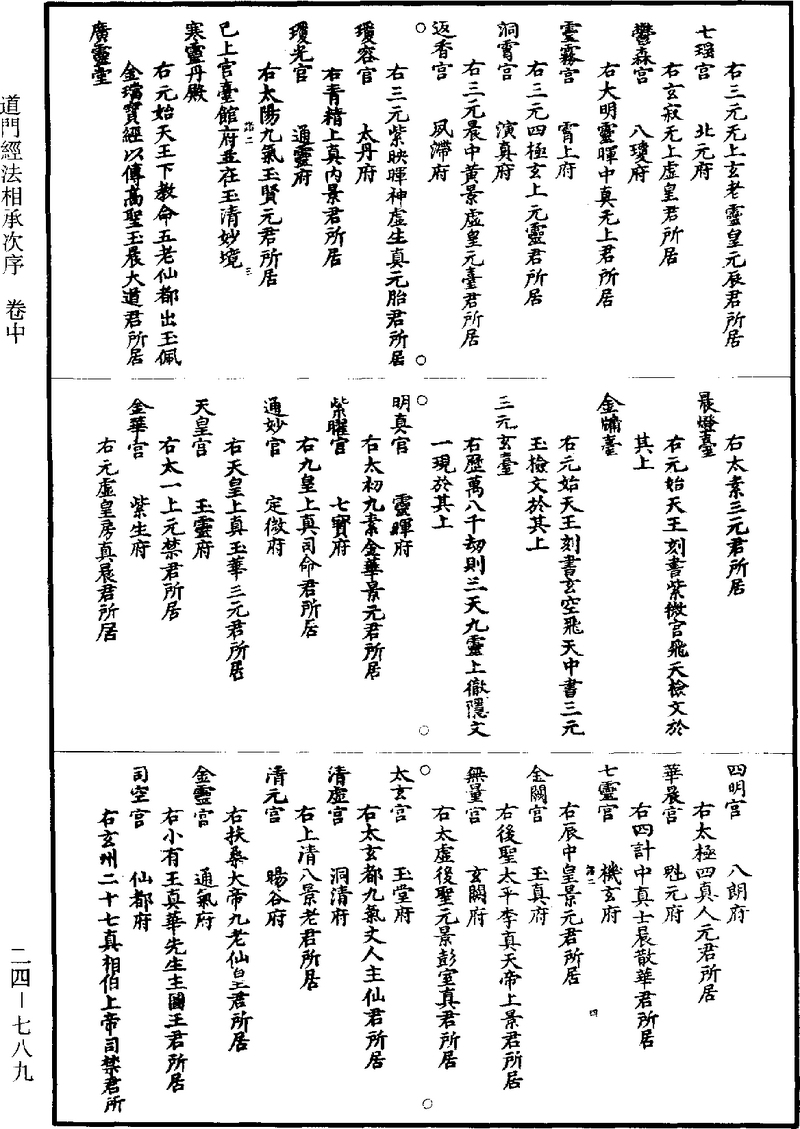 右三元无上玄老靈皇元辰君所居
七瑶宮　北元府
右玄寂无上虛皇君所居
鬱森宮　八瓊府
右大明靈暉中真无上君所居
雲霧宮　霄上府
右三元四極玄上元靈君所居
洞霄宮　演真府
右三元晨中黄景虛皇元臺君所居
返香宮　夙滯府
右三元紫映暉神虛生真元胎君所居
瓊容宮　太丹府
右青精上真内景君所居
瓊光宮　通靈府
右太陽九氣玉賢元君所居
已上宮臺館府並在玉清妙境
三
寒靈丹殿
右元始天王下教命五老仙都出玉佩
金璫寶經以傳高聖玉晨大道君所居
廣靈堂
右太素三元君所居
晨燈臺
右元始天王刻書紫微宮飛天檢文於
其上
金墉臺
右元始天王刻書玄空飛天中書三元
玉檢文於其上
三元玄臺
右歷萬八千劫則三天九靈上徹隱文
一現於其上
明真宮　靈暉府
右太初九素金華景元君所居
紫曜宮　七寶府
右九皇上真司命君所居
通妙宮　定微府
右天皇上真玉華三元君所居
天皇宮　玉靈府
右太一上元禁君所居
金華宮　紫生府
右元虛皇房真晨君所居
四明宮　八朗府
右太極四真人元君所居
華晨宮　魁元府
右四計中真士晨散華君所居
七靈宮　機玄府
四
右辰中皇景元君所居
金闕宮　玉真府
右後聖太平李真天帝上景君所居
無量宮　玄闕府
右太虛後聖元景彭室真君所居
太玄宮　玉堂府
右太玄都九氣丈人主仙君所居
清虛宮　洞清府
右上清八景老君所居
清元宮　暘谷府
右扶桑大帝九老仙皇君所居
金靈宮　通氣府
右小有王真華先生主國王君所居
司空宮　仙都府
右玄州二十七真相伯上帝司禁君所
道門經法相承次序　卷中
二四－七八九